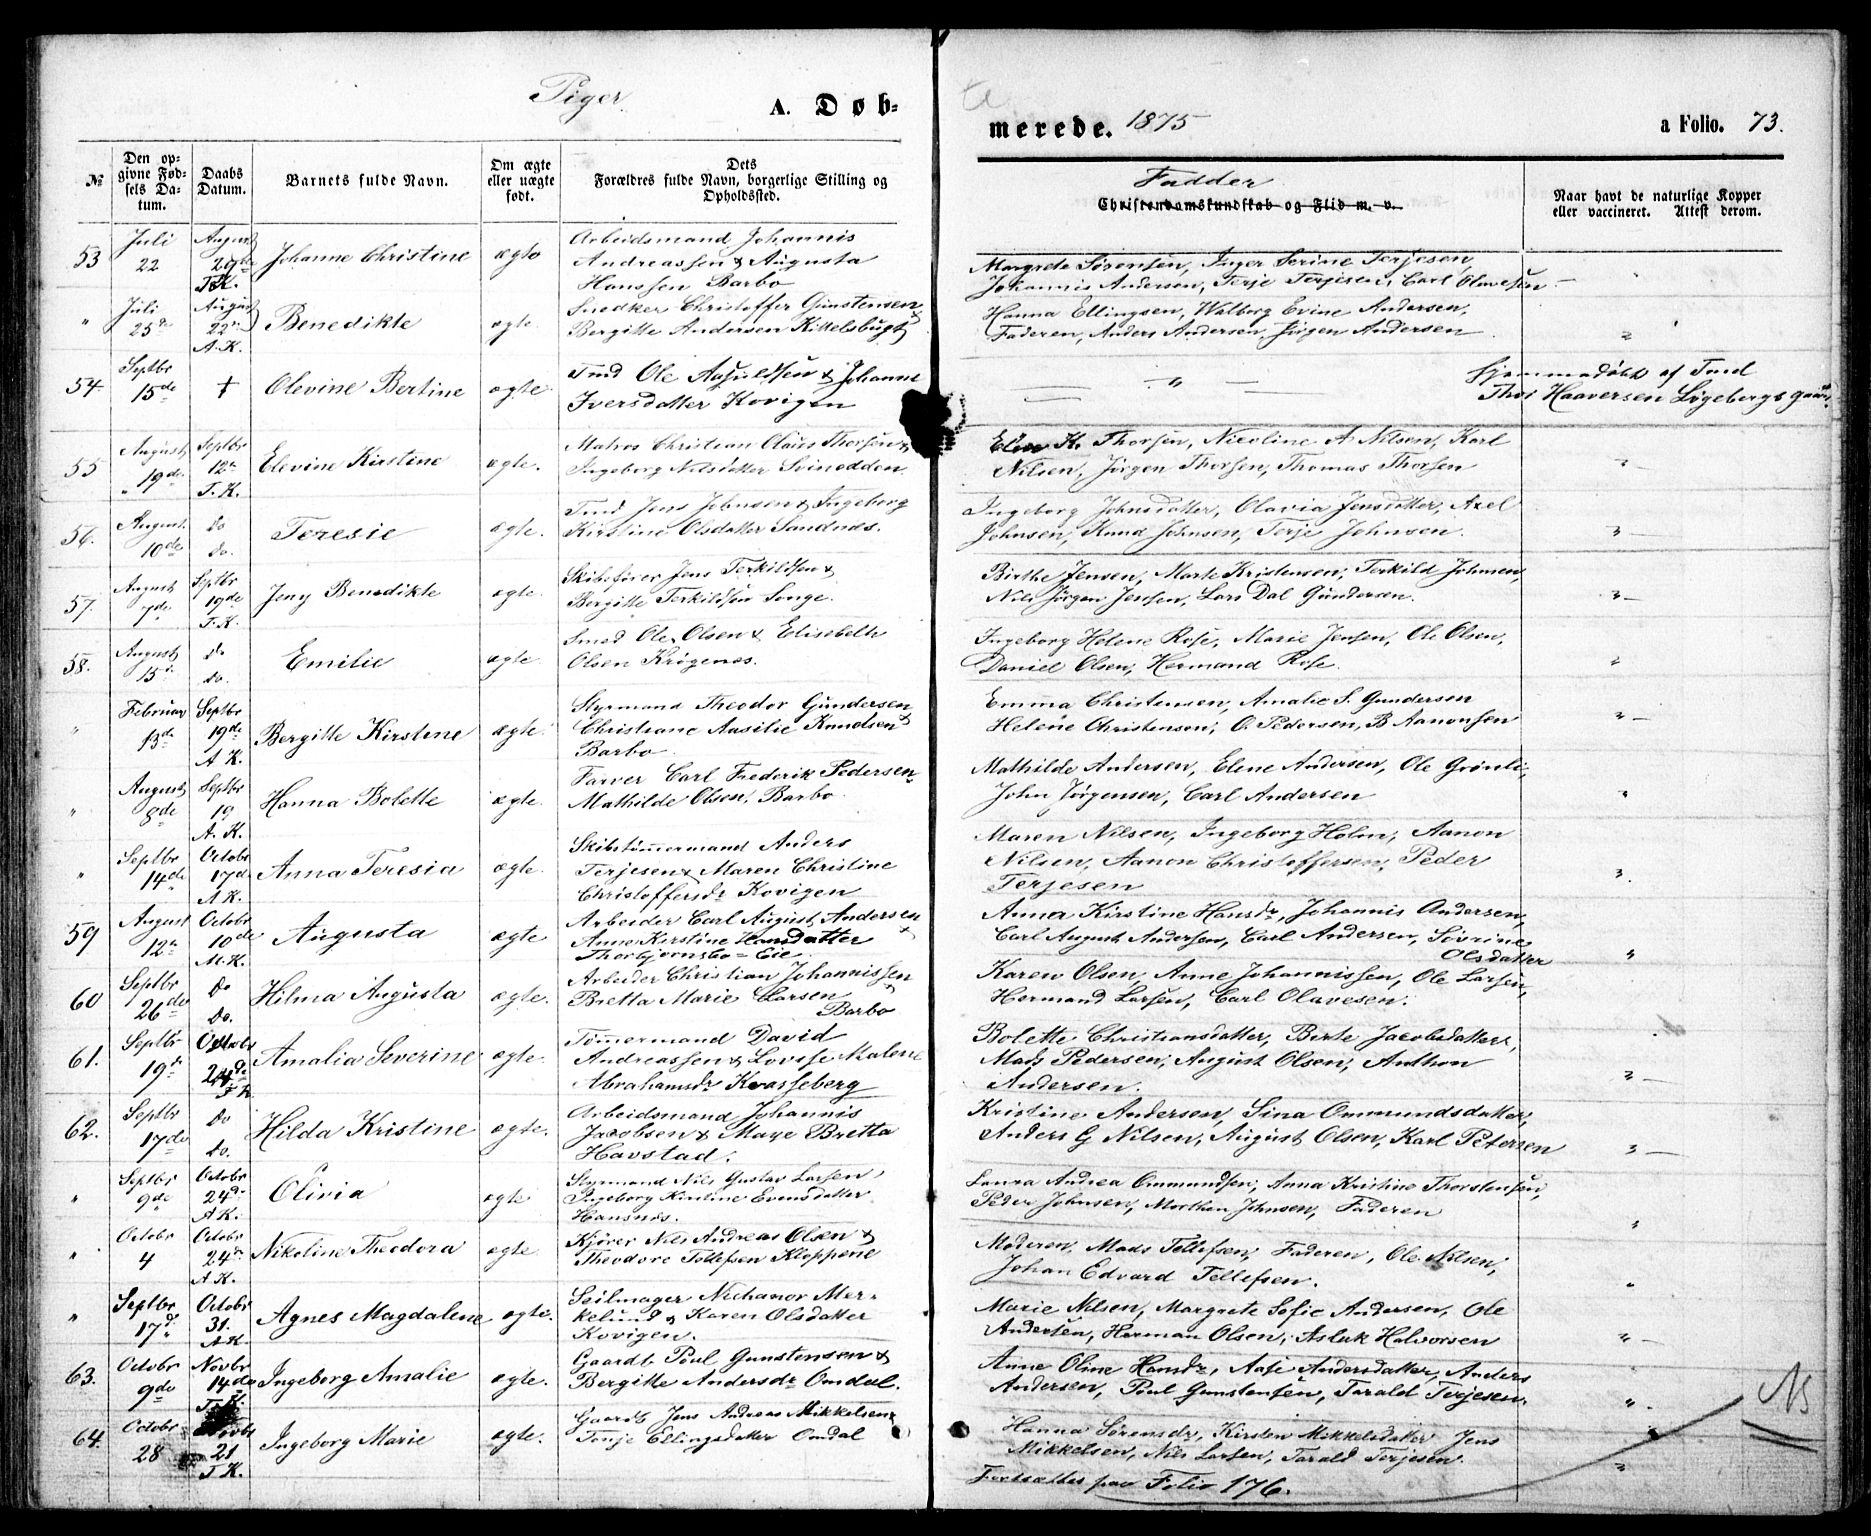 Piger
A. Døb-
№
Den op-
givne Fød-
sels Da-
tum.
Daabs
Datum.
Barnets fulde Navn.
Om ægte
eller uægte
født.
Dets
Forældres fulde Navn, borgerlige Stilling og
Opholdssted.
53
Juli
22
August
29de
T.K.
Johanne Christine
ægte
Arbeidsmand Johannis
Andreassen & Augusta
Hanssen Barbo
"
Juli
25de
August
22de
A.K.
Benedikte
ægte.
Snedker Christoffer Gunstensen &
Bergitte Andersen Kittelsbugt
54.
Septbr
15de
†
Olevine Bertine
ægte.
Tmd Ole & Johanne
Iversdatter Kovigen
55
August
" 19de
Septbr
12te
T.K.
Elevine Kirstine
ægte.
Matros Christian Olaus Thorsen &
Ingeborg Nilsdatter Svinodden
56.
August.
10de
do
do.
Teresie
ægte.
Tmd Jens Johnsen & Ingeborg
Kirstine Olsdatter Sandnæs.
57.
August
7de
Septbr
19de
T.K.
Jeny Benedikte
ægte.
Skibsfører Jens Terkildsen &
Bergitte Terkildsen Songe.
58.
August
15de
do
do.
Emilie
ægte.
Smed Ole Olsen & Elisebeth
Olsen Krøgenes.
"
Februar
13de
Septbr
19de
A.K.
Bergitte Kirstine
ægte.
Styrmand Theodor Gundersen &
Christiane Aasilie Knudsen
Barbo
"
August
8de
Septbr
19
A.K.
Hanna Bolette
ægte.
Farver Carl Frederik Pedersen
Mathilde Olsen, Barbo
"
Septbr
14de
Octobr
17de
A.K.
Anna Teresia
ægte.
Skibstømmermand Anders
Terjesen & Maren Christine
Christoffersdr Kovigen
59
August
12te
Octobr
10de
M.K.
Augusta
ægte
Arbeider Carl August Andersen &
Anne Kirstine Hansdatter
Thorbjørnsbo-Eie
60
Septbr
26de
do
do.
Hilma Augusta
ægte.
Arbeider Christian Johannissen &
Bretta Marie Larsen
Barbo
61.
Septbr
19de
Octobr
24de
T.K.
Amalia Severine
ægte.
Tømmermand David
Andreassen & Lovise Malene
Abrahamsdr Kvasseberg
62.
Septbr
17de
do
do.
Hilda Kristine
ægte.
Arbeidsmand Johannis
Jacobsen & Maye Bretta
Havstad.
"
Septbr
9de
Octobr
24de
A.K.
Olivia
ægte
Styrmand Nils Gustav Larsen
Ingeborg Kirstine Evensdatter
Hansnæs.
"
Octobr
4
Octobr
24de
A.K.
Nikoline Theodora
ægte.
Kjører Nils Andreas Olsen &
Theodore Tellefsen Kloppene
"
Septbr
17de
Octobr
31.
A.K.
Agnes Magdalene
ægte.
Seilmager Nichanor Mer-
kelund & Karen Olsdatter
Kovigen.
63.
Octobr
9de
Novbr
14de
T.K.
Ingeborg Amalie
ægte.
Gaardb Poul Gunstensen &
Bergitte Andersdr Omdal.
64
Octobr
28
Novbr
21
T.K.
Ingeborg Marie
ægte.
Gaardb Jens Andreas Mikkelsen &
Tonje Ellingsdatter Omdal
merede. 1875
a Folio. 73.
Fadder
Christendomskundskab og Flid m. v.
Naar havt de naturlige Kopper
eller vaccineret. Attest derom.
Margrete Sørensen, Inger Serine Terjesen,
Johannis Andersen, Terje Terjesen, Carl Olavesen
Hanna Ellingsen, Walborg Evine Andersen,
Faderen, Anders Andersen, Jørgen Andersen
Hjemmedøbt af Tmd
Thor Haaversen Løgebergsgaard
Elen K. Thorsen, Nicoline A. Nilsen, Karl
Nilsen, Jørgen Thorsen, Thomas Thorsen
Ingeborg Johnsdatter, Olavia Jensdatter, Axel
Johnsen, Knud Johnsen, Terje Johnsen.
Birthe Jensen, Marte Kristensen, Terkild Johnsen,
Nils Jørgen Jensen, Lars Dal Gundersen.
Ingeborg Helene Rose, Marie Jensen, Ole Olsen,
Daniel Olsen, Hermand Rose.
Emma Christensen, Amalie S. Gundersen
Helene Christensen, O. Pedersen, B Aanonsen
Mathilde Andersen, Elene Andersen, Ole Grønli,
John Jørgensen, Carl Andersen
Maren Nilsen, Ingeborg Holm, Aanon
Nilsen, Aanon Christoffersen, Peder
Terjesen
Anna Kirstine Hansdr, Johannis Andersen,
Carl August Andersen, Carl Andersen, Sørine
Olsdatter
Karen Olsen, Anne Johannissen, Ole Larsen,
Hermand Larsen, Carl Olavesen.
Bolette Christiansdatter, Berte Jacobsdatter,
Mads Pedersen, August Olsen, Anthon
Andersen.
Kristine Andersen, Sina Ommundsdatter,
Anders G Nilsen, August Olsen, Karl Petersen
Laura Andrea Ommundsen, Anna Kristine Thorstensen,
Peder Johnsen, Morthen Johnsen, Faderen
Moderen, Mads Tellefsen, Faderen, Ole Nilsen,
Johan Edvard Tellefsen.
Marie Nilsen, Margrete Sofie Andersen, Ole
Andersen, Herman Olsen, Aslak Halvorsen
Anne Oline Hansdr, Aase Andersdatter, Anders
Andersen, Poul Gunstensen, Tarald Terjesen.
Hanna Sørensdr, Kirsten Mikkelsdatter Jens
Mikkelsen, Nils Larsen, Tarald Terjesen.
Fortsættes paa Folio 176.